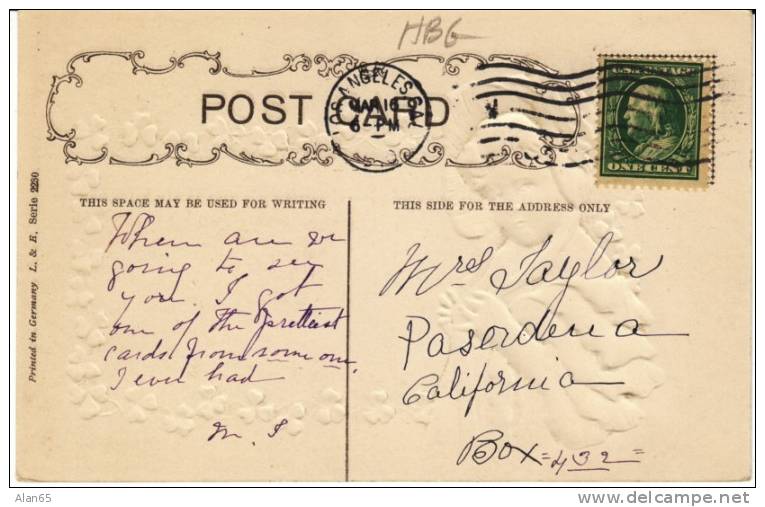 HBG
POST CARD
LOS ANGELES CAL
MAR 16
6-PM
ONE CENT
THIS SPACE MAY BE USED FOR WRITING
THIS SIDE FOR THE ADDRESS ONLY
When are we
going to see
you. I got
one of the prettiest
cards from some one
I ever had
M. S
Mrs Taylor
Paserdena
California
Box = 432 =
Printed in Germany L. & R. Serie 2230
Alan65
delcampe.net